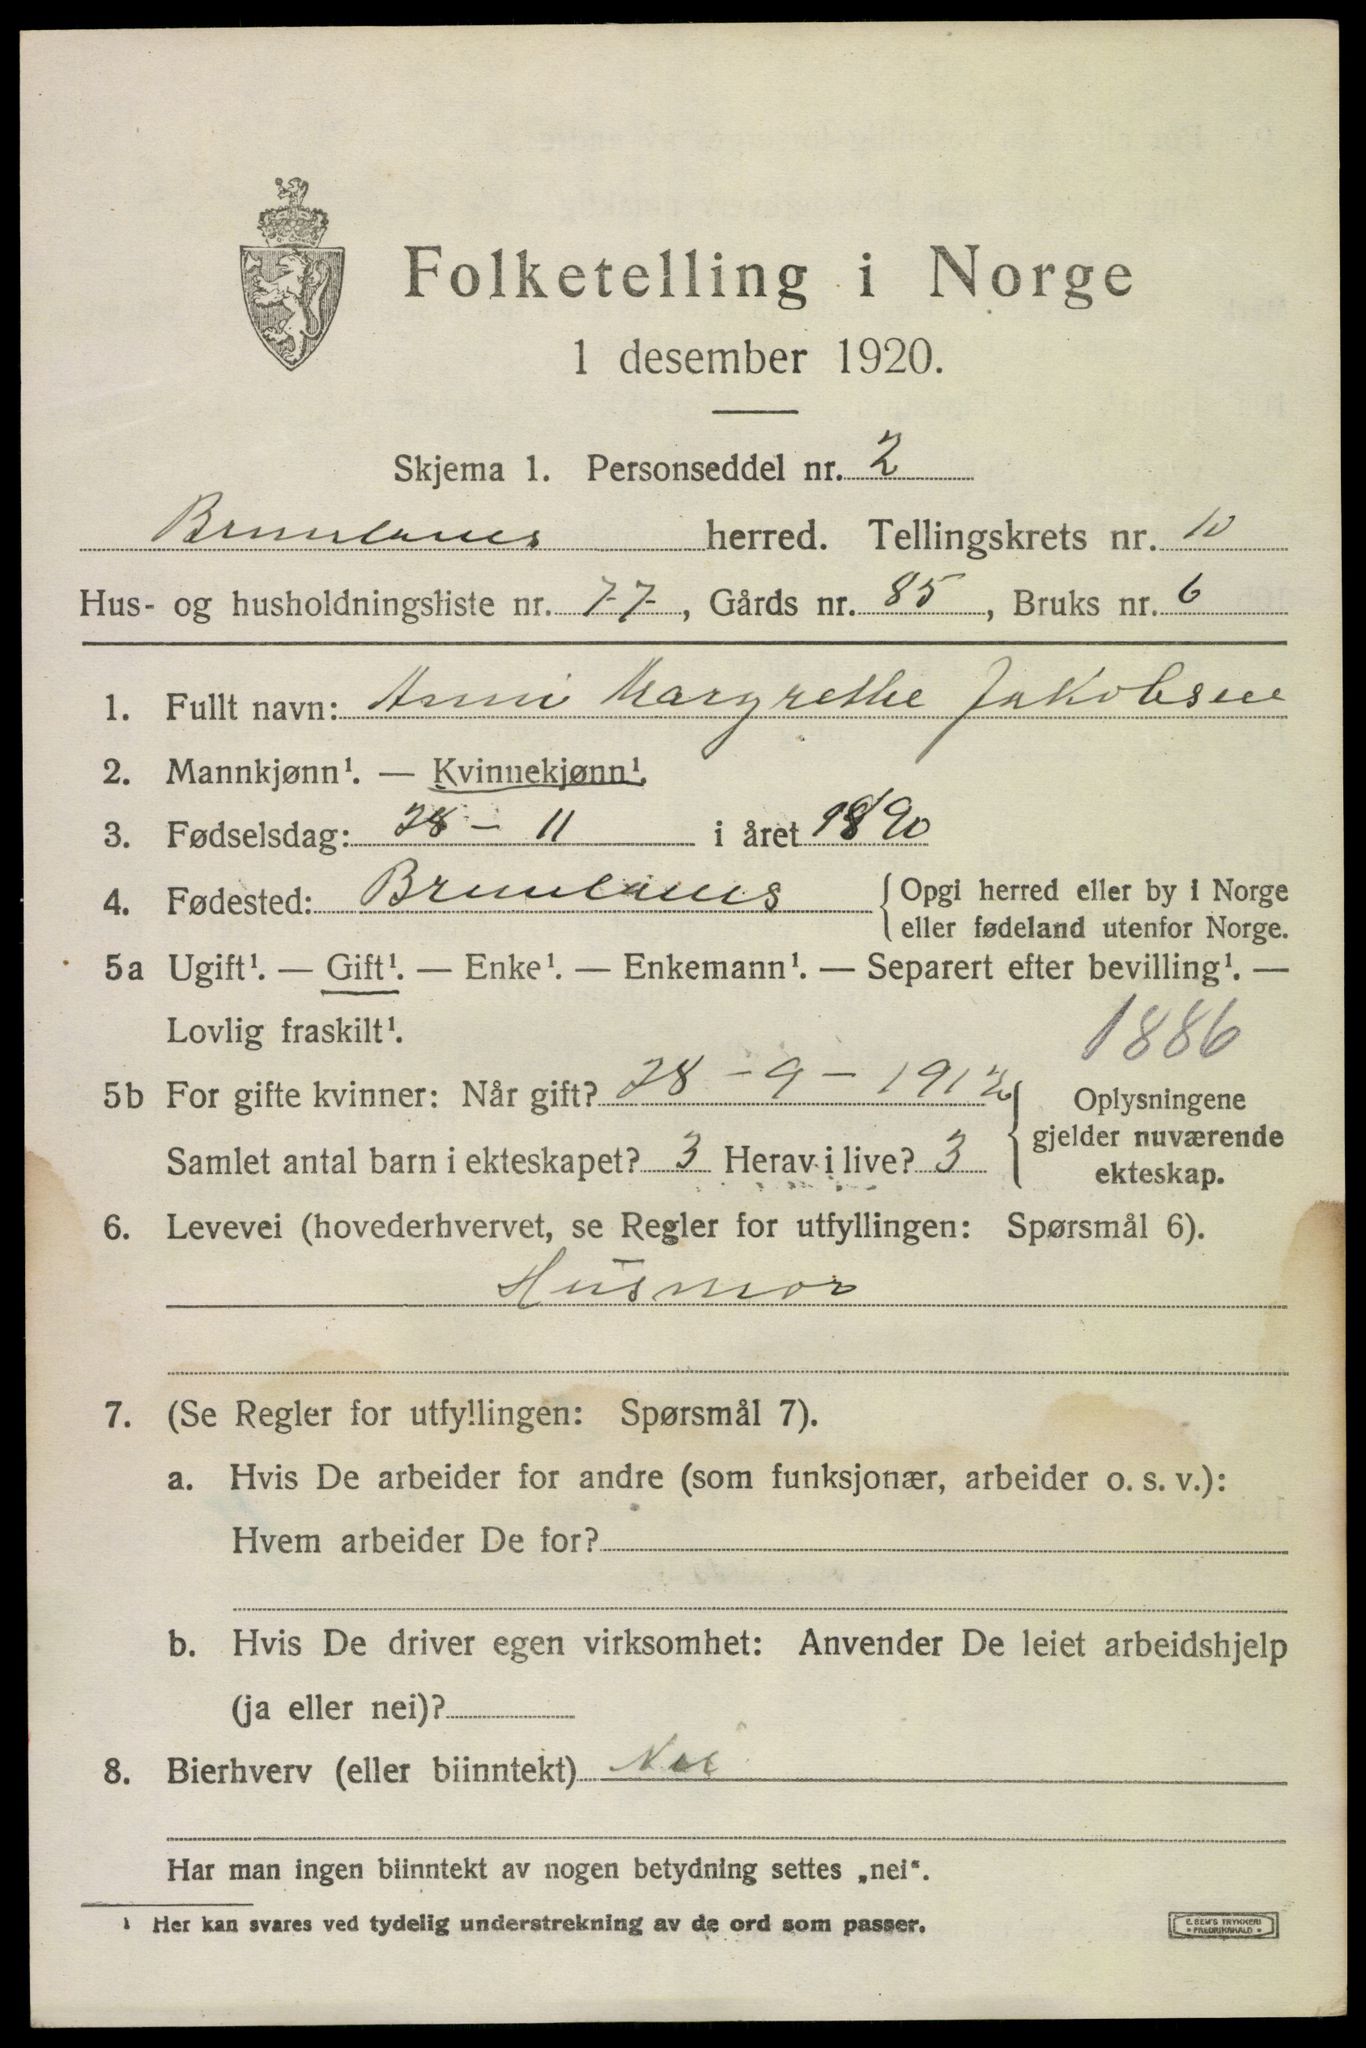 Folketelling i Norge
1 desember 1920.
Skjema 1. Personseddel nr. 2
Brunlanes herred. Tellingskrets nr. 10
Hus- og husholdningsliste nr. 77, Gårds nr. 85, Bruks nr. 6
1. Fullt navn: Anni Margrethe Jakobsen
2. Mannkjønn¹. — Kvinnekjønn¹.
3. Fødselsdag: 28 – 11 i året 1890
4. Fødested: Brunlanes {Opgi herred eller by i Norge
eller fødeland utenfor Norge.
5a Ugift¹. — Gift¹. — Enke¹. — Enkemann¹. — Separert efter bevilling¹. —
Lovlig fraskilt¹.
1886
5b For gifte kvinner: Når gift? 28 – 9 – 1912 { Oplysningene
gjelder nuværende
Samlet antal barn i ekteskapet? 3 Herav i live? 3
ekteskap.
6. Levevei (hovederhvervet, se Regler for utfyllingen: Spørsmål 6).
Husmor
7. (Se Regler for utfyllingen: Spørsmål 7).
a. Hvis De arbeider for andre (som funksjonær, arbeider o. s. v.):
Hvem arbeider De for?
b. Hvis De driver egen virksomhet: Anvender De leiet arbeidshjelp
(ja eller nei)?
8. Bierhverv (eller biinntekt) Nei
Har man ingen biinntekt av nogen betydning settes „nei“.
¹ Her kan svares ved tydelig understrekning av de ord som passer.
E. SEM'S TRYKKERI
• FREDRIKSHALD •